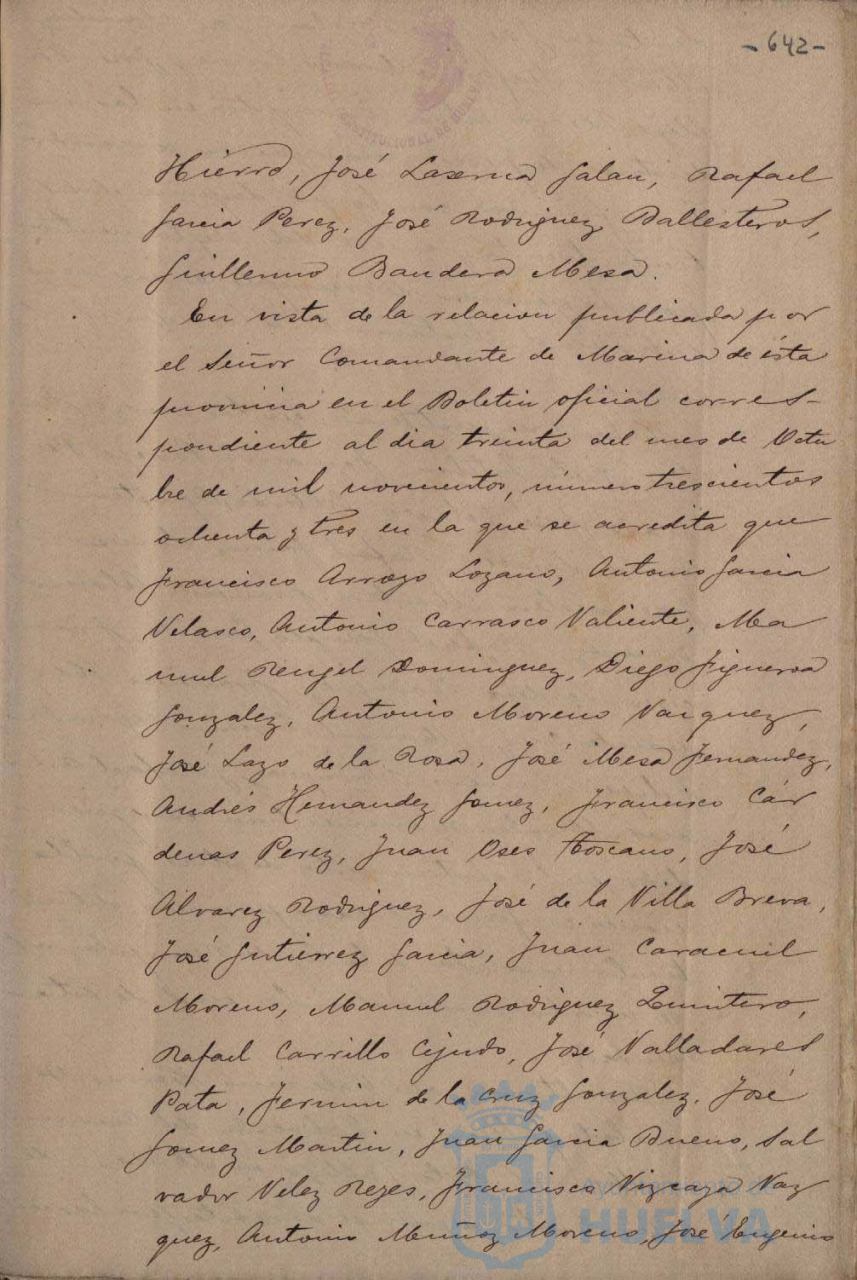 -642-
Hierro, José Laserna Galan, Rafael
Garcia Perez, José Rodriguez Ballesteros,
Guillermo Bandera Mesa.
En vista de la relacion publicada por
el Señor Comandante de Marina de ésta
provincia en el Boletin oficial corres-
pondiente al dia treinta del mes de Octu
bre de mil novecientos, número trescientos
ochenta y tres en la que se acredita que
Francisco Arroyo Lozano, Antonio Garcia
Velasco, Antonio Carrasco Valiente, Ma
nuel Rengel Dominguez, Diego Figueroa
Gonzalez, Antonio Moreno Vazquez,
José Lazo de la Rosa, José Mesa Fernandez,
Andrés Hernandez Gomez, Francisco Cár
denas Perez, Juan Oses Toscano, José
Alvarez Rodriguez, José de la Villa Breva,
José Gutierrez Garcia, Juan Caracuel
Moreno, Manuel Rodriguez Quintero,
Rafael Carrillo Cejudo, José Valladares
Pata, Fermin de la Cruz Gonzalez, José
Gomez Martin, Juan Garcia Bueno, Sal
vador Velez Reyes, Francisco Vizcaya Vaz
quez, Antonio Muñoz Moreno, José Eugenio
HUELVA